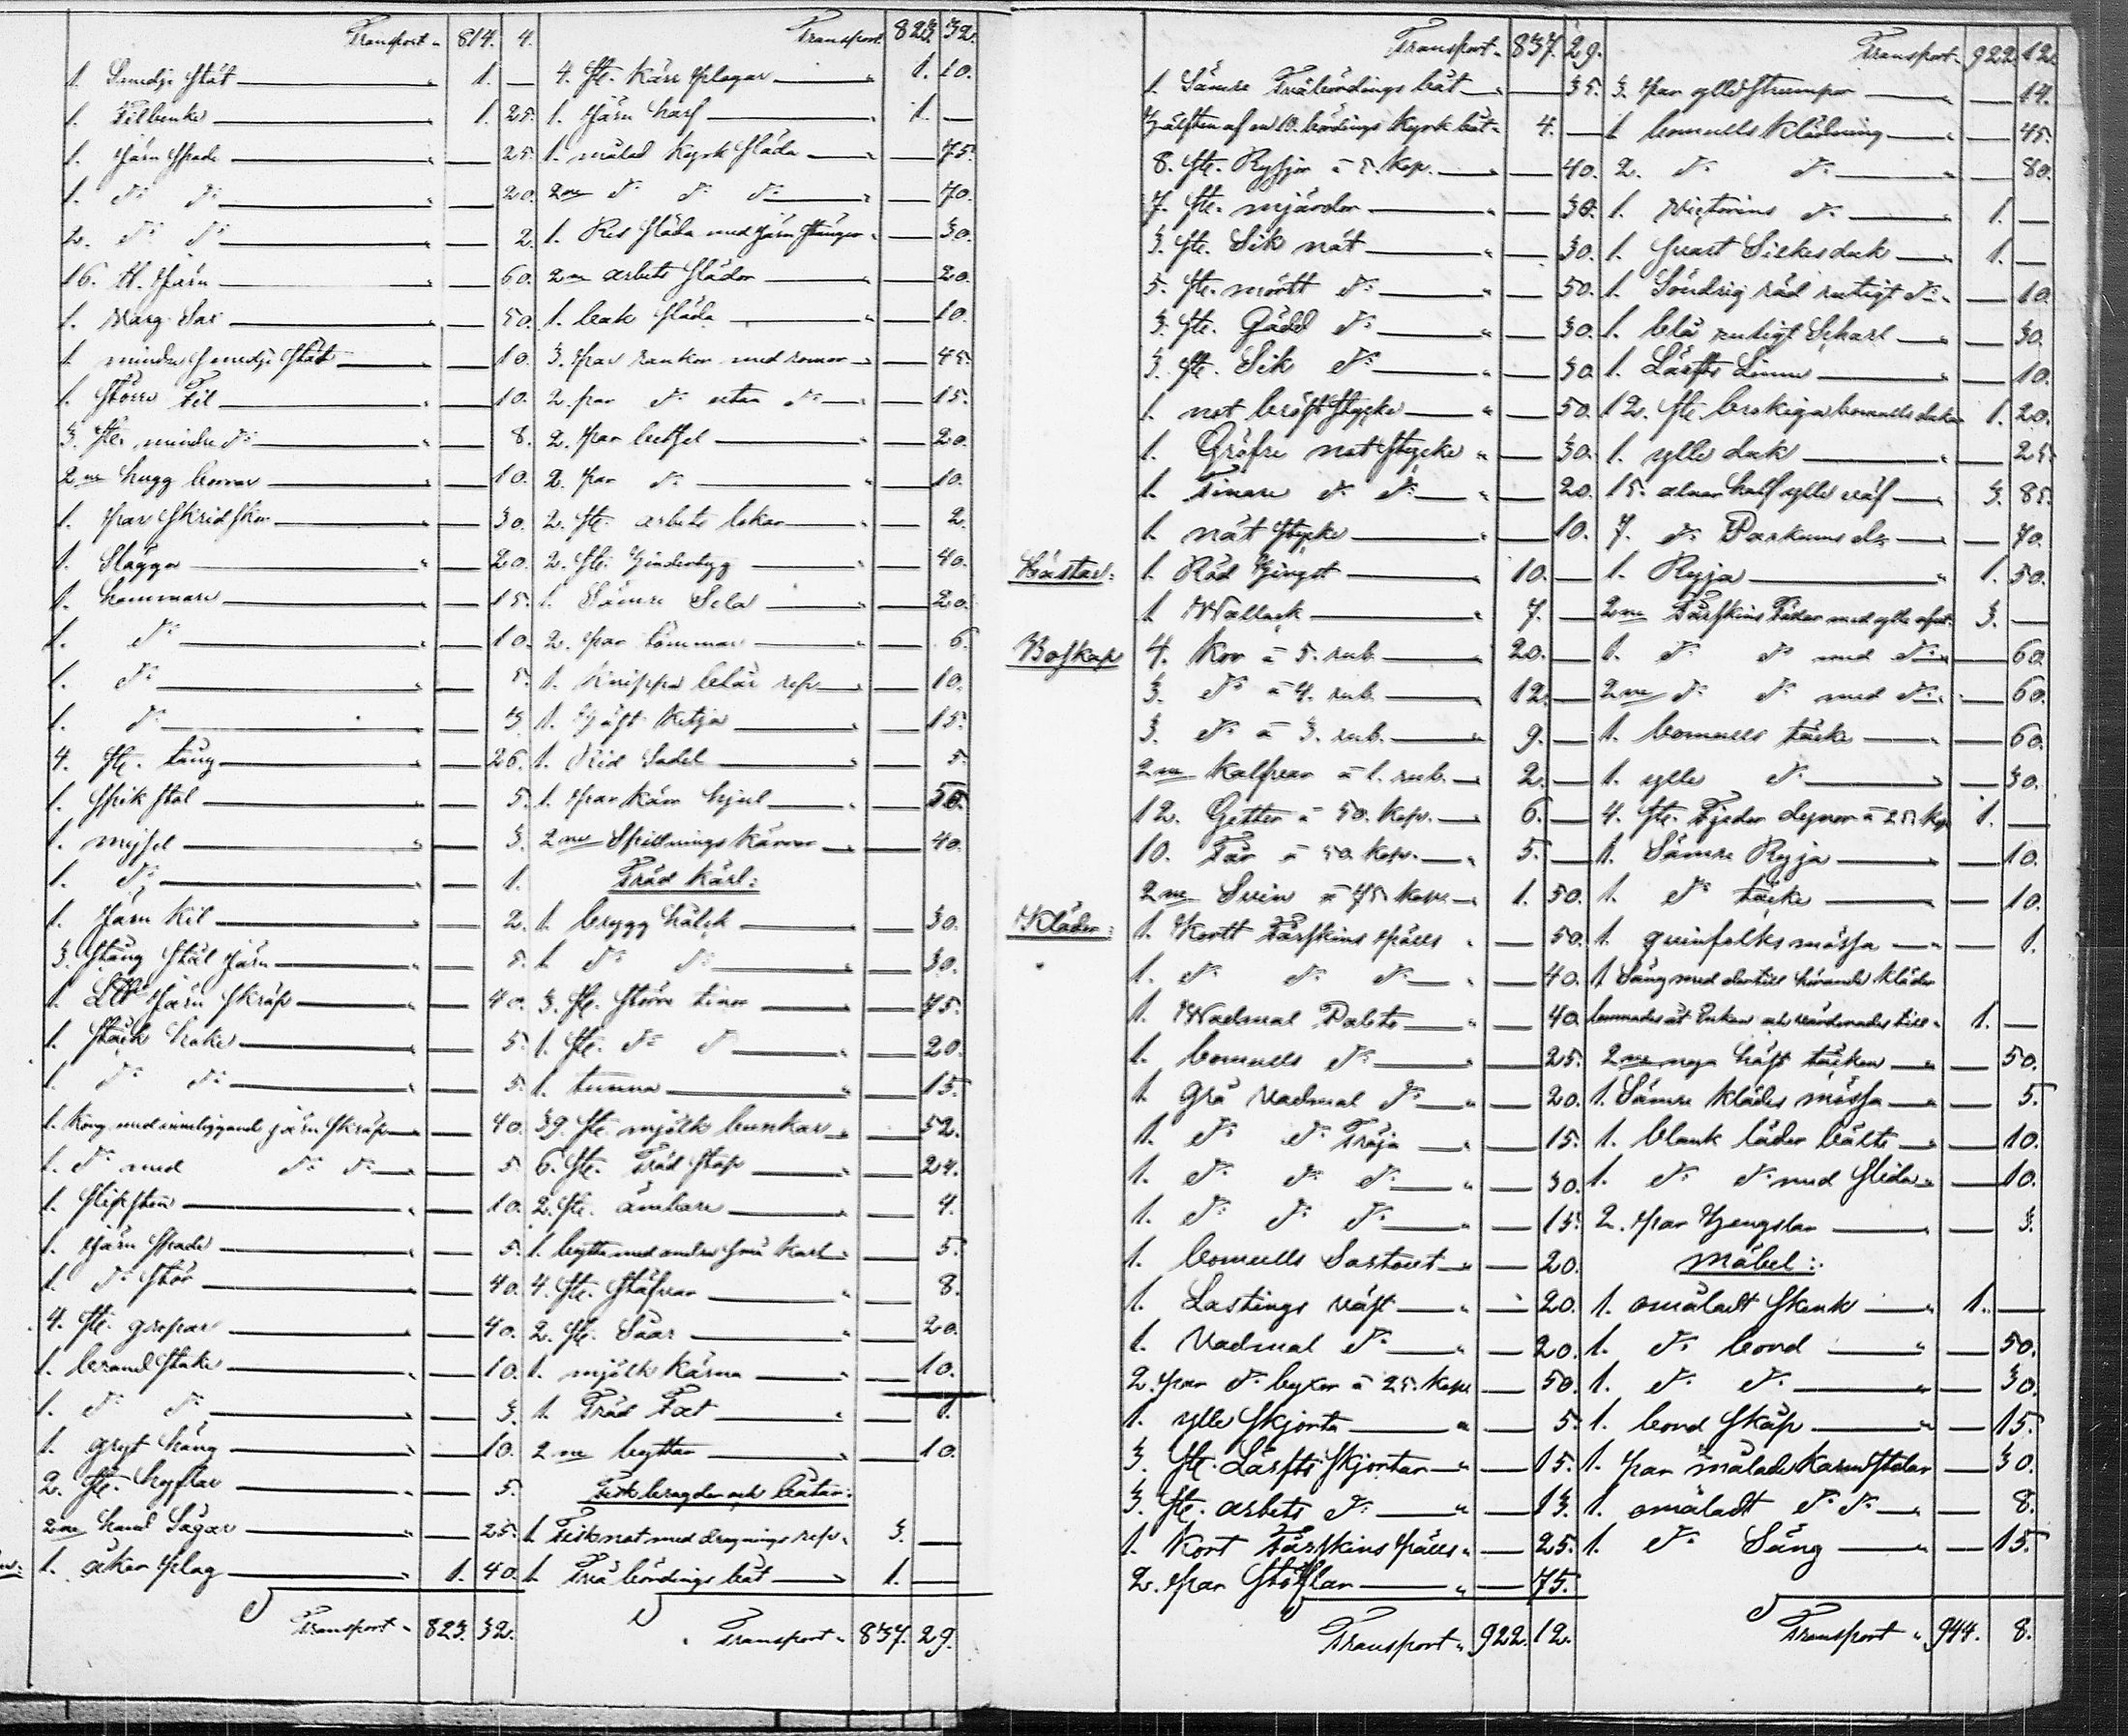 Transport " 814. 4.
1. Smedje städ " 1. —
1. Filbänk " 1. 25.
1. Järn Spade " — 25.
1. D:o D:o " — 20.
2. D:o D:o " — 2.
16. ℔ Järn " — 60.
1. Varg Sax " — 50.
1. mindre smedje städ " — 10.
1. större Fil " — 10.
3. st. mindre D:o " — 8.
2ne hugg borrar " — 10.
1. par Skridskor " — 30.
1. Slägga " — 20.
1. hammare " — 15.
1. D:o " — 10.
1. D:o " — 5.
1. D:o " — 3.
4. st. tång " — 26.
1. Spik stål " — 5.
1. mejsel " — 3.
1. D:o " — 1.
1. Järn Kil " — 2.
3. stång stål järn " — 5.
1. L℔ Järn Skräp " — 40.
1. Stäck hake " — 5.
1. D:o D:o " — 5.
1. Korg med inneliggande järn Skräp " — 40.
1. D:o med D:o D:o " — 5.
1. Slipsten " — 10.
1. Järn Spade " — 5.
1. D:o Stör " — 40.
4. st. grepar " — 40.
1. brand stake " — 10.
1. D:o D:o " — 3.
1. gryt häng " — 10.
2. st. hyflar " — 5.
2ne hand Sågar " — 25.
1. åker plog " 1. 40.
Transport " 823. 32.
Transport. 823. 32.
4. st. Kärr plogar " 1. 10.
1. Järn harf " 1. —
1. målad Kyrk släda " — 75.
2ne D:o D:o D:o " — 70.
1. Res släda med järn stänger " — 30.
2ne arbets slädor " — 20.
1. bak släda " — 10.
3. par rankor med remor " — 45.
2. par D:o utan D:o " — 15.
2. par betsel " — 20.
2. par D:o " — 10.
2. st. arbets lokor " — 2.
2. st. hinderbyg " — 40.
1. Sämre Sela " — 20.
2. par tömmar " — 6.
1. Knippa blår rep " — 10.
1. Häst Ketja " — 15.
1. Rid Sadel " — 5.
1. par Kärr hjul " — 50.
2ne Spillnings Kärror " — 40.
Träd Kärl:
1. brygg hålck " — 30.
1. D:o D:o " — 30.
3. st. större tinor " — 75.
1. st. D:o D:o " — 20.
1. tunna " — 15.
39. st. mjölk bunkar " — 52.
6. st. Träd stop " — 24.
2. st. ämbare " — 4.
1. bytta med andra små Karl " — 5.
4. st. Stäfvor " — 8.
2. st. Såar " — 20.
1. mjölk Kärna " — 10.
1. Träd Fat " —
2ne byttor " — 10.
Fiskbragder och båtar:
1. Fisknot med dragnings rep " 3. —
1. Två bördings båt " 1. —
Transport " 837. 29.
Transport " 837. 29.
1. Sämre Tväbördings båt " — 35.
Hälften af en 10. bördings Kyrk båt " 4. —
8. st. Rysjor à 5. Kop. " — 40.
7. st. mjärdor " — 30.
3. st. Sik nät " — 30.
5. st. mörtt D:o " — 50.
3. st. Gädd D:o " — 30.
3. st. Sik D:o " — 30.
1. not bröst stycke " — 50.
1. Gröfre not stycke " — 30.
1. Finare D:o D:o " — 20.
1. nät stycke " — 10.
Hästar: 1. Röd Hingst " 10. —
1. Wallack " 7. —
Boskap 4. Kor à 5. rub. 20. —
3. D:o à 4. rub. " 12. —
3. D:o à 3. rub. " 9. —
2ne Kalfvar à 1. rub. " 2. —
12. Getter à 50. Kop. " 6. —
10. Får à 50. Kop. " 5. —
2ne Svin à 75. Kop. " 1. 50.
Kläder: 1. Kortt Fårskins päls " — 50.
1. D:o D:o D:o " — 40.
1. Wadmal Palito " — 40.
1. bomulls D:o " — 25.
1. grå vadmal D:o " — 20.
1. D:o D:o Tröja " — 15.
1. D:o D:o D:o " — 30.
1. D:o D:o D:o " — 15.
1. bomulls Sortout " — 20.
1. Lastings väst " — 20.
1. Vadmal D:o " — 20.
2. par D:o byxor à 25. Kop. — 50.
1. ylle skjorta " — 5.
3. st. Lärfts skjortor " — 15.
3. st. arbets D:o " — 13.
1. Kort Fårskins päls " — 25.
2. par Stöflar " — 75.
Transport " 922. 12.
Transport " 922. 12.
3. par ylle strumpor " — 14.
1. bomulls Klädning " — 45.
2. D:o D:o " — 80.
1. Victorins D:o " 1. —
1. svart Silkesduk " 1. —
1. Söndrig röd rutigt D:o " — 10.
1. blå rutigt Scharl " — 30.
1. Lärfts Linne " — 10.
12. st. brokiga bomulls dukar 1. 20.
1. ylle duk " — 25.
15. alnar half ylle väf " 3. 85.
7. D:o Parkums D:o " — 70.
1. Ryja " 1. 50.
2ne Fårskins Fäller med ylle 3. —
1. D:o D:o med D:o " — 60.
2ne D:o D:o med D:o " — 60.
1. bomulls täcke " — 60.
1. ylle D:o " — 30.
4. st. Fjeder dynor à 25. Kop 1. —
1. Sämre Ryja " — 10.
1. D:o täcke " — 10.
1. qvinfolks mössa " — 1.
1. Säng med dertill hörande Kläder
lemnades åt Enkan och värderades till " 1. —
2ne nya häst täcken " — 50.
1. Sämre Klädes mössa " — 5.
1. blank läder bälte " — 10.
1. D:o D:o med slida " — 10.
2. par Hengslar " — 3.
Möbel:
1. omåladt Skänk " 1. —
1. D:o bord " — 50.
1. D:o D:o " — 30.
1. bord Skåp " — 15.
1. par målade Karmstolar — 30.
1. omåladt D:o D:o " — 8.
1. D:o Säng " — 15.
Transport " 944. 8.